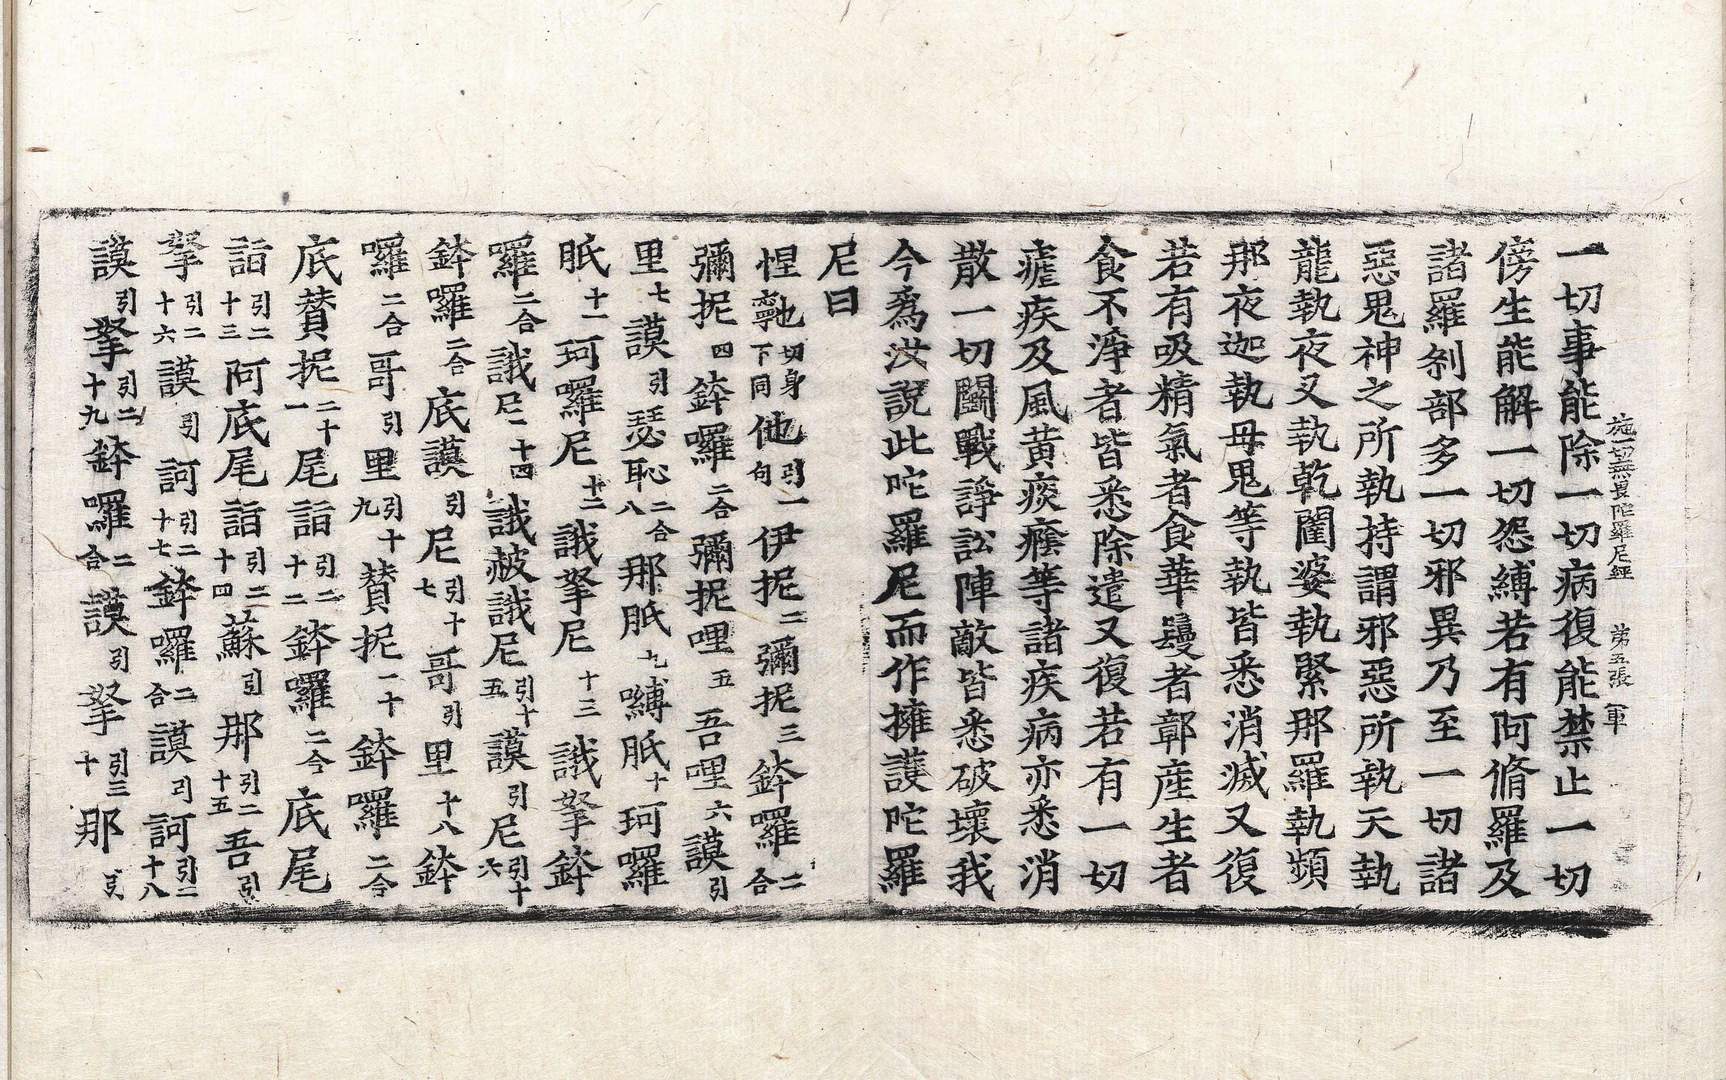 施一切無畏陀羅尼經 第五張 軍
一切事能除一切病復能禁止一切
傍生能解一切怨縛若有阿脩羅及
諸羅剎部多一切邪異乃至一切諸
惡鬼神之所執持謂邪惡所執天執
龍執夜叉執乾闥婆執緊那羅執頻
那夜迦執母鬼等執皆悉消滅又復
若有吸精氣者食華鬘者鄣產生者
食不淨者皆悉除遣又復若有一切
瘧疾及風黃痰癊等諸疾病亦悉消
散一切鬭戰諍訟陣敵皆悉破壞我
今為汝說此陀羅尼而作擁護陀羅
尼曰
怛寧也切身下同他引一句伊抳二彌抳三鉢囉二合
彌抳四鉢囉二合彌抳哩五吾哩六謨引
里七謨引瑟恥二合八那胝九嚩胝十珂囉
胝十一珂囉尼十二誐拏尼十三誐拏鉢
囉二合誐尼一十四誐赧誐尼引十五謨引尼引十六
鉢囉二合底謨引尼引十七哥引里十八鉢
囉二合哥引里引十九贊抳一十鉢囉二合
底贊抳二十一尾詣引二十二鉢囉二合底尾
詣引二十三阿底尾詣引二十四蘇引那引二十五吾引
拏引二十六謨引訶引二十七鉢囉二合謨引訶引二十八
謨引拏引二十九鉢囉二合謨引拏引三十那引